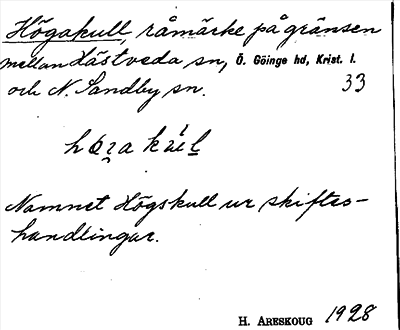 Högakull, råmärke på gränsen
mellan Hästveda sn, Ö. Göinge hd, Krist. l.
och N. Sandby sn. 33
Namnet Högskull ur skiftes-
handlingar.
H. Areskoug 1928